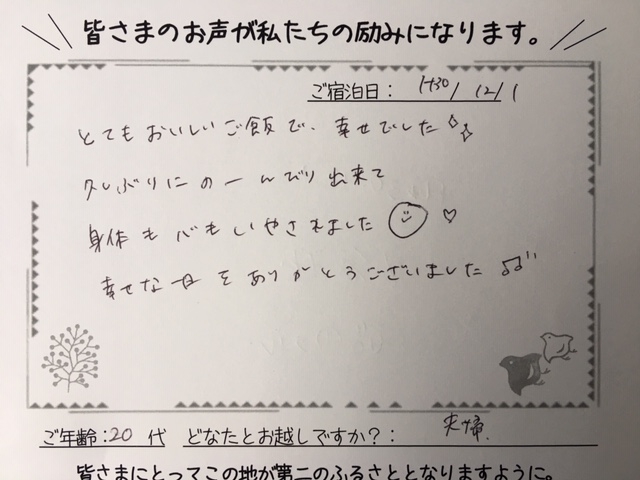 皆さまのお声が私たちの励みになります。
ご宿泊日: H30/12/1
とてもおいしいご飯で、幸せでした
久しぶりにのーんびり出来て
身体も心もいやされました
幸せな一日をありがとうございました♫"
ご年齢:20代 どなたとお越しですか?: 夫婦.
皆さまにとってこの地が第二のふるさととなりますように。